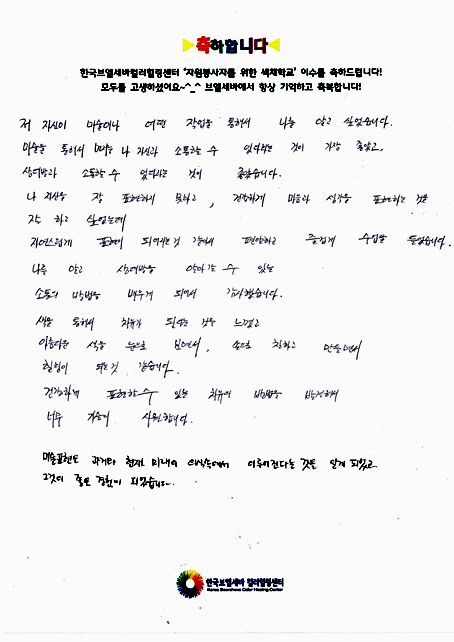 ▶축하합니다◀
한국브엘세바컬러힐링센터 '자원봉사자를 위한 색채학교' 이수를 축하드립니다!
모두들 고생하셨어요~^_^ 브엘세바에서 항상 기억하고 축복합니다!
저 자신이 미술이나 어떤 작업을 통해서 나를 알고 싶었습니다.
미술을 통해서 나 자신과 소통할 수 있다라는 것이 가장 좋았고,
상대방과 소통할 수 있다라는 것이 좋았습니다.
나 자신을 잘 표현하지 못하고, 건강하게 마음과 생각을 표현하는 것을
잘 하고 싶었는데
자연스럽게 표현이 되어지는것 같아서 편안하고 즐겁게 수업을 들었습니다.
나를 알고 상대방을 알아가는 수 있는
소통의 방법을 배우게 되어서 감사했습니다.
색을 통해서 치유가 되는 것을 느꼈고
아름다운 색을 눈으로 보면서, 손으로 칠하고 만들면서
힐링이 되는것 같습니다.
건강하게 표현할수 있는 치유의 방법을 발견해서
너무 가슴이 시원합니다.
미술표현은 과거와 현재 미래의 의식속에서 이루어진다는 것을 알게 되었고
그것이 좋은 경험이 되었습니다.
한국브엘세바 컬러힐링센터
Korea Beersheva Color Healing Center